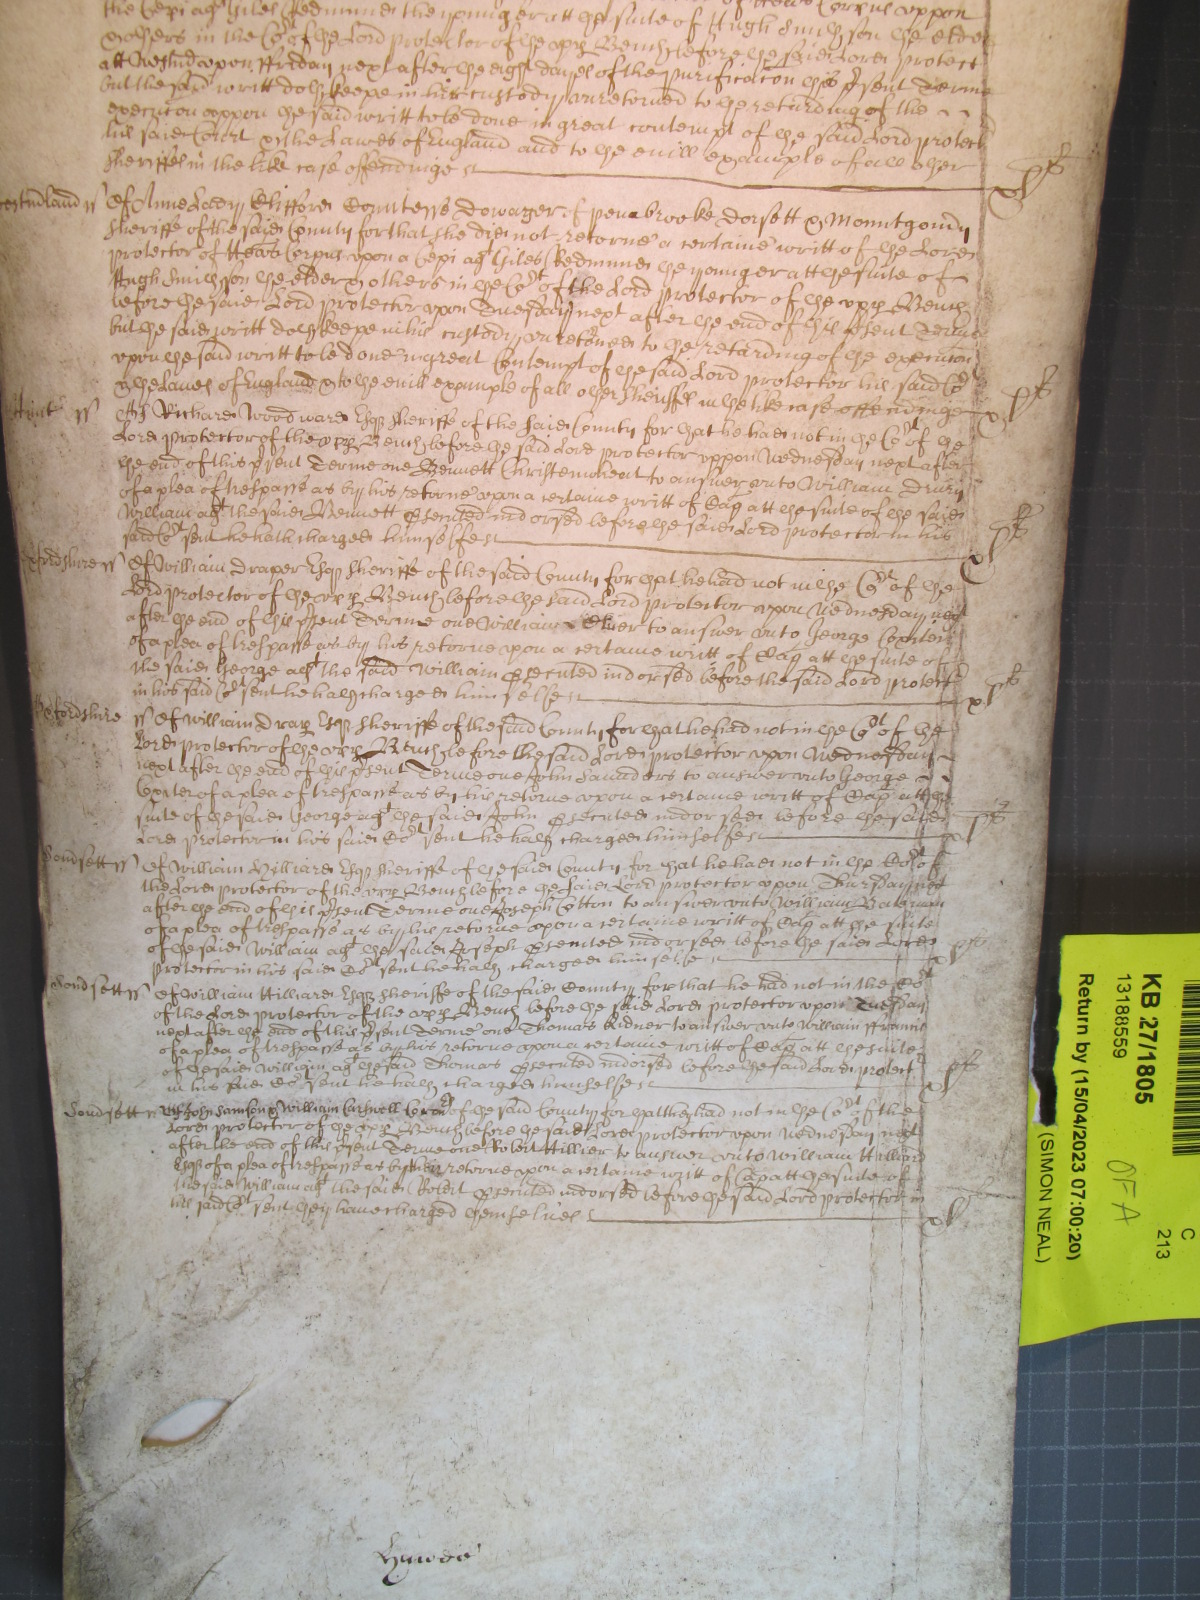 the Cepi agt Giles Redminde the younger att the suite of Hugh Smithson the elder
& others in the Cot of the Lord protector of the upp Bench before the said Lord Protect
att Westmr upon ffriday next after the eight dayes of the purificacon this psent Terme
but the said writt doth keepe in his custody unreturned to the retarding of the
execucon uppon the said writt to be done in great contempt of the said Lord protect
his said Court & the Lawes of England and to the evill example of all other
Sheriffes in the like case offendinge
Westmland ss Of Anne Lady Clifford Countesse Dowager of penbrooke Dorsett & Mountgomry
Sheriffe of the said County for that she did not retorne a certaine writt of the Lord
protector of Heas Corpus upon a Cepi agt Giles Redminde the younger att the suite of
Hugh Smithson the elder & others in the Cot of the Lord Protector of the upp Bench
before the said Lord protector upon Tuesday next after the end of this psent Terme
but the said writt doth keepe in his custody unretorned to the retarding of the execucon
upon the said writt to be done in great Contempt of the said Lord protector his said Cot
& the Lawes of England & to the evill example of all other Sheriffes in the like case offendinge
Hunt ss Of Richard Woodward Esqr Sheriffe of the said County for that he had not in the Cot of the
Lord Protector of the upp Bench before the said Lord protector uppon Wednesday next after
the end of this psent Terme one Bennett to answer unto William Drury
of a plea of trespasse as by his retorne upon a certaine writt of Cap att the suite of the said
William agt the said Bennett executed indorsed before the said Lord protector in his
said Cot sent he hath charged himselfe
Oxfordshire ss Of William Draper Esqr Sheriffe of the said County for that he had not in the Cot of the
Lord Protector of the upp Bench before the said Lord Protector upon Wednesday next
after the end of this psent Terme one William to answer unto George Coxeter
of a plea of trespasse as by his retorne upon a certaine writt of Cap att the suite of
the said George agt the said William executed indorsed before the said Lord protect
in his said Cot sent he hath charged himselfe
Oxfordshire ss Of William Drap Esqr Sheriffe of the said County for that he had not in the Cot of the
Lord protector of the upp Bench before the said Lord protector upon Wednesday
next after the end of this psent Terme one John Saunders to answer unto George
Coxeter of a plea of trespasse as by his retorne upon a certaine writt of Cap att the
suite of the said George agt the said John executed indorsed before the said
Lord protector in his said Cot sent he hath charged himselfe
Somsett ss Of William Hilliard Esqr Sheriffe of the said County for that he had not in the Cot of
the Lord protector of the upp Bench before the said Lord protector upon Thursday next
after the end of this psent Terme one Joseph Cotton to answer unto William Bateman
of a plea of trespasse as by his retorne upon a certaine writt of Cap att the suite
of the said William agt the said Joseph executed indorsed before the said Lord
Protector in his said Cot sent he hath charged himselfe
Somsett ss Of William Hilliard Esqr Sheriffe of the said County for that he had not in the Cot
of the Lord protector of the upp Bench before the said Lord protector upon Tuesday
next after the end of this psent Terme one Thomas Kidner to answer unto William ffrancis
of a plea of trespasse as by his retorne upon a certaine writt of Cap att the suite
of the said William agt the said Thomas executed indorsed before the said Lord protect
in his said Cot sent he hath charged himselfe
Somsett ss Of John Samson & William Cathwell Coron of the said County for that they had not in the Cot of the
Lord protector of the upp Bench before the said Lord protector upon Wednesday next
after the end of this psent Terme one Robert Hillier to answer unto William Hilliard
Esqr of a plea of trespasse as by their retorne upon a certaine writt of Cap att the suite of
the said William agt the said Robert executed indorsed before the said Lord protector in
his said Cot sent they have charged themselves
KB 27/1805
13188559
Return by (15/04/2023 07:00:20)
(SIMON NEAL)
C
213
OFA